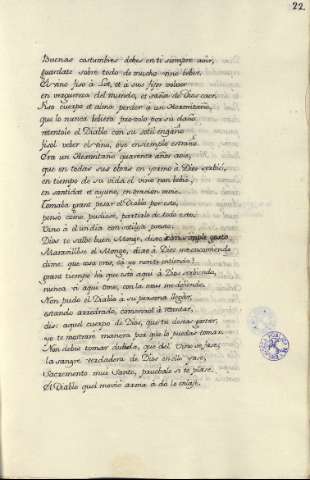 22
Buenas costumbres debes en ti siempre aver,
guardate sobre todo de mucho vino beber.
El vino fiso à Lot, et à sus fijas volver
en verguenza del mundo, et saña de Dios caer.
Fiso cuerpo et alma perder a un Hermitaño,
que lo nunca bebiera provolo por su daño
retentole el Diablo con su sotil engaño
fisol beber el vino, oye ensiemplo estraño.
Era un Hermitano quarenta años avia,
que en todas sus obras en yermo à Dios servia,
en tiempo de su vida el vino non bebia,
en santidat et ayuno, en oracion vivie.
Tomaba grant pesar el Diablo por esto,
penso como pudiese, partirle de todo esto.
Vino à él un dia con sotileza presto;
Dios te salbe buen Monge, dixo simple gesto
Maravillose el Monge, dixo à Dios me encomiendo
dime que cosa eres, ca yo non te entiendo?
grant tiempo ha que está aqui à Dios serbiendo,
nunca vi aqui ome, con la cruz me defiendo.
Non pudo el Diablo à su persona llegar,
estando arredrado, comenzol à retentar,
dis: aquel cuerpo de Dios, que tu deseas gostar,
yo te mostraré manera por que lo puedas tomar.
Non debes tomar dubda, que del vino se fase,
la sangre verdadera de Dios en ello yase,
Sacramento mui Santo, pruebalo si te plase.
El Diablo quel movió arma à do lo enlase.